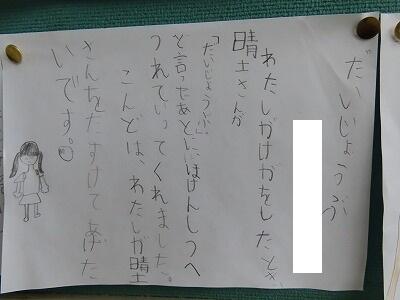 だいじょうぶ
わたしがけがをしたとき、
晴土さんが
「だいじょうぶ」
と言ったあとにほけんしつへ
つれていってくれました。
こんどは、わたしが晴土
さんをたすけてあげた
いです。